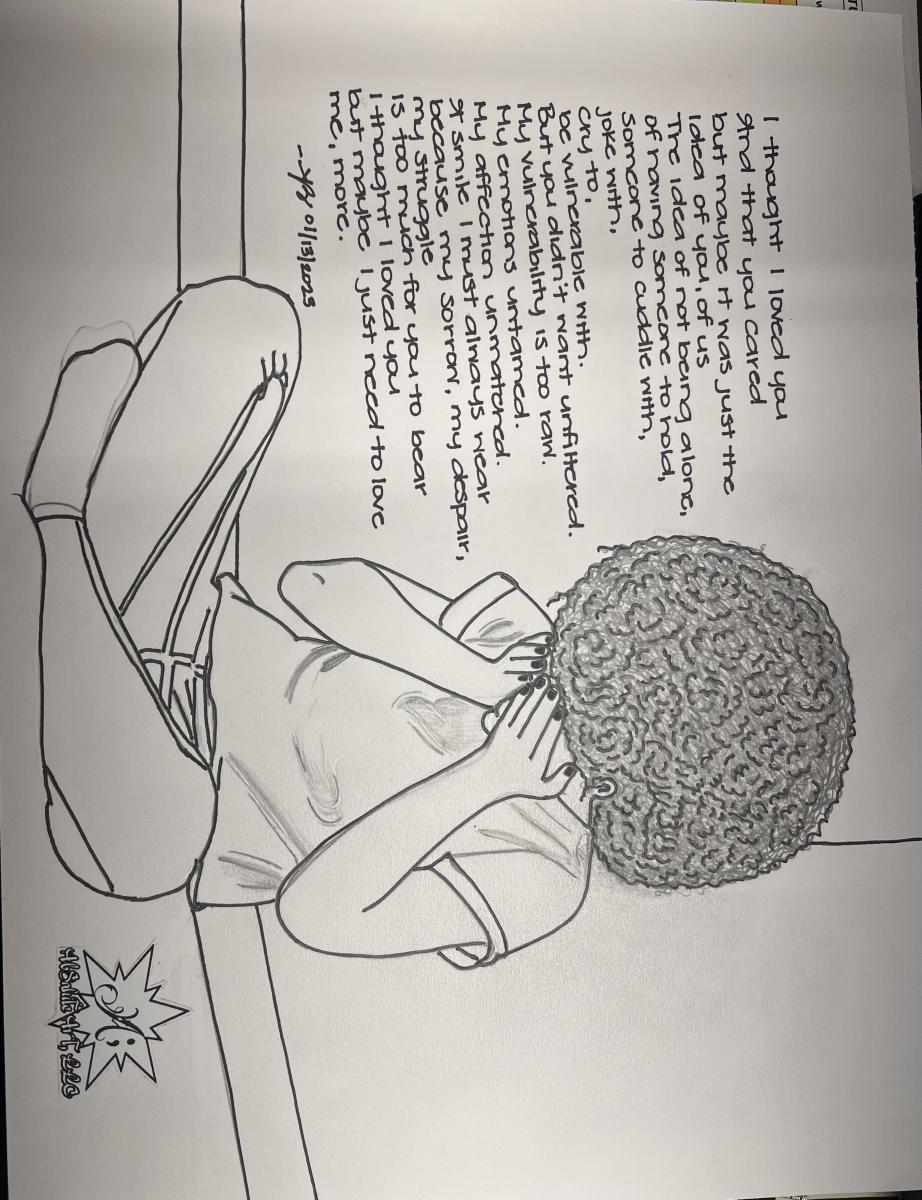 I thought I loved you
And that you cared
but maybe it was just the
idea of you, of us
The idea of not being alone,
of having someone to hold,
someone to cuddle with,
joke with,
cry to,
be vulnerable with.
But you didn't want unfiltered.
My vulnerability is too raw.
My emotions untamed.
My affection unmatched.
A smile I must always wear
because my sorrow, my despair,
my struggle
is too much for you to bear
I thought I loved you
but maybe I just need to love
me, more.
01/13/2023